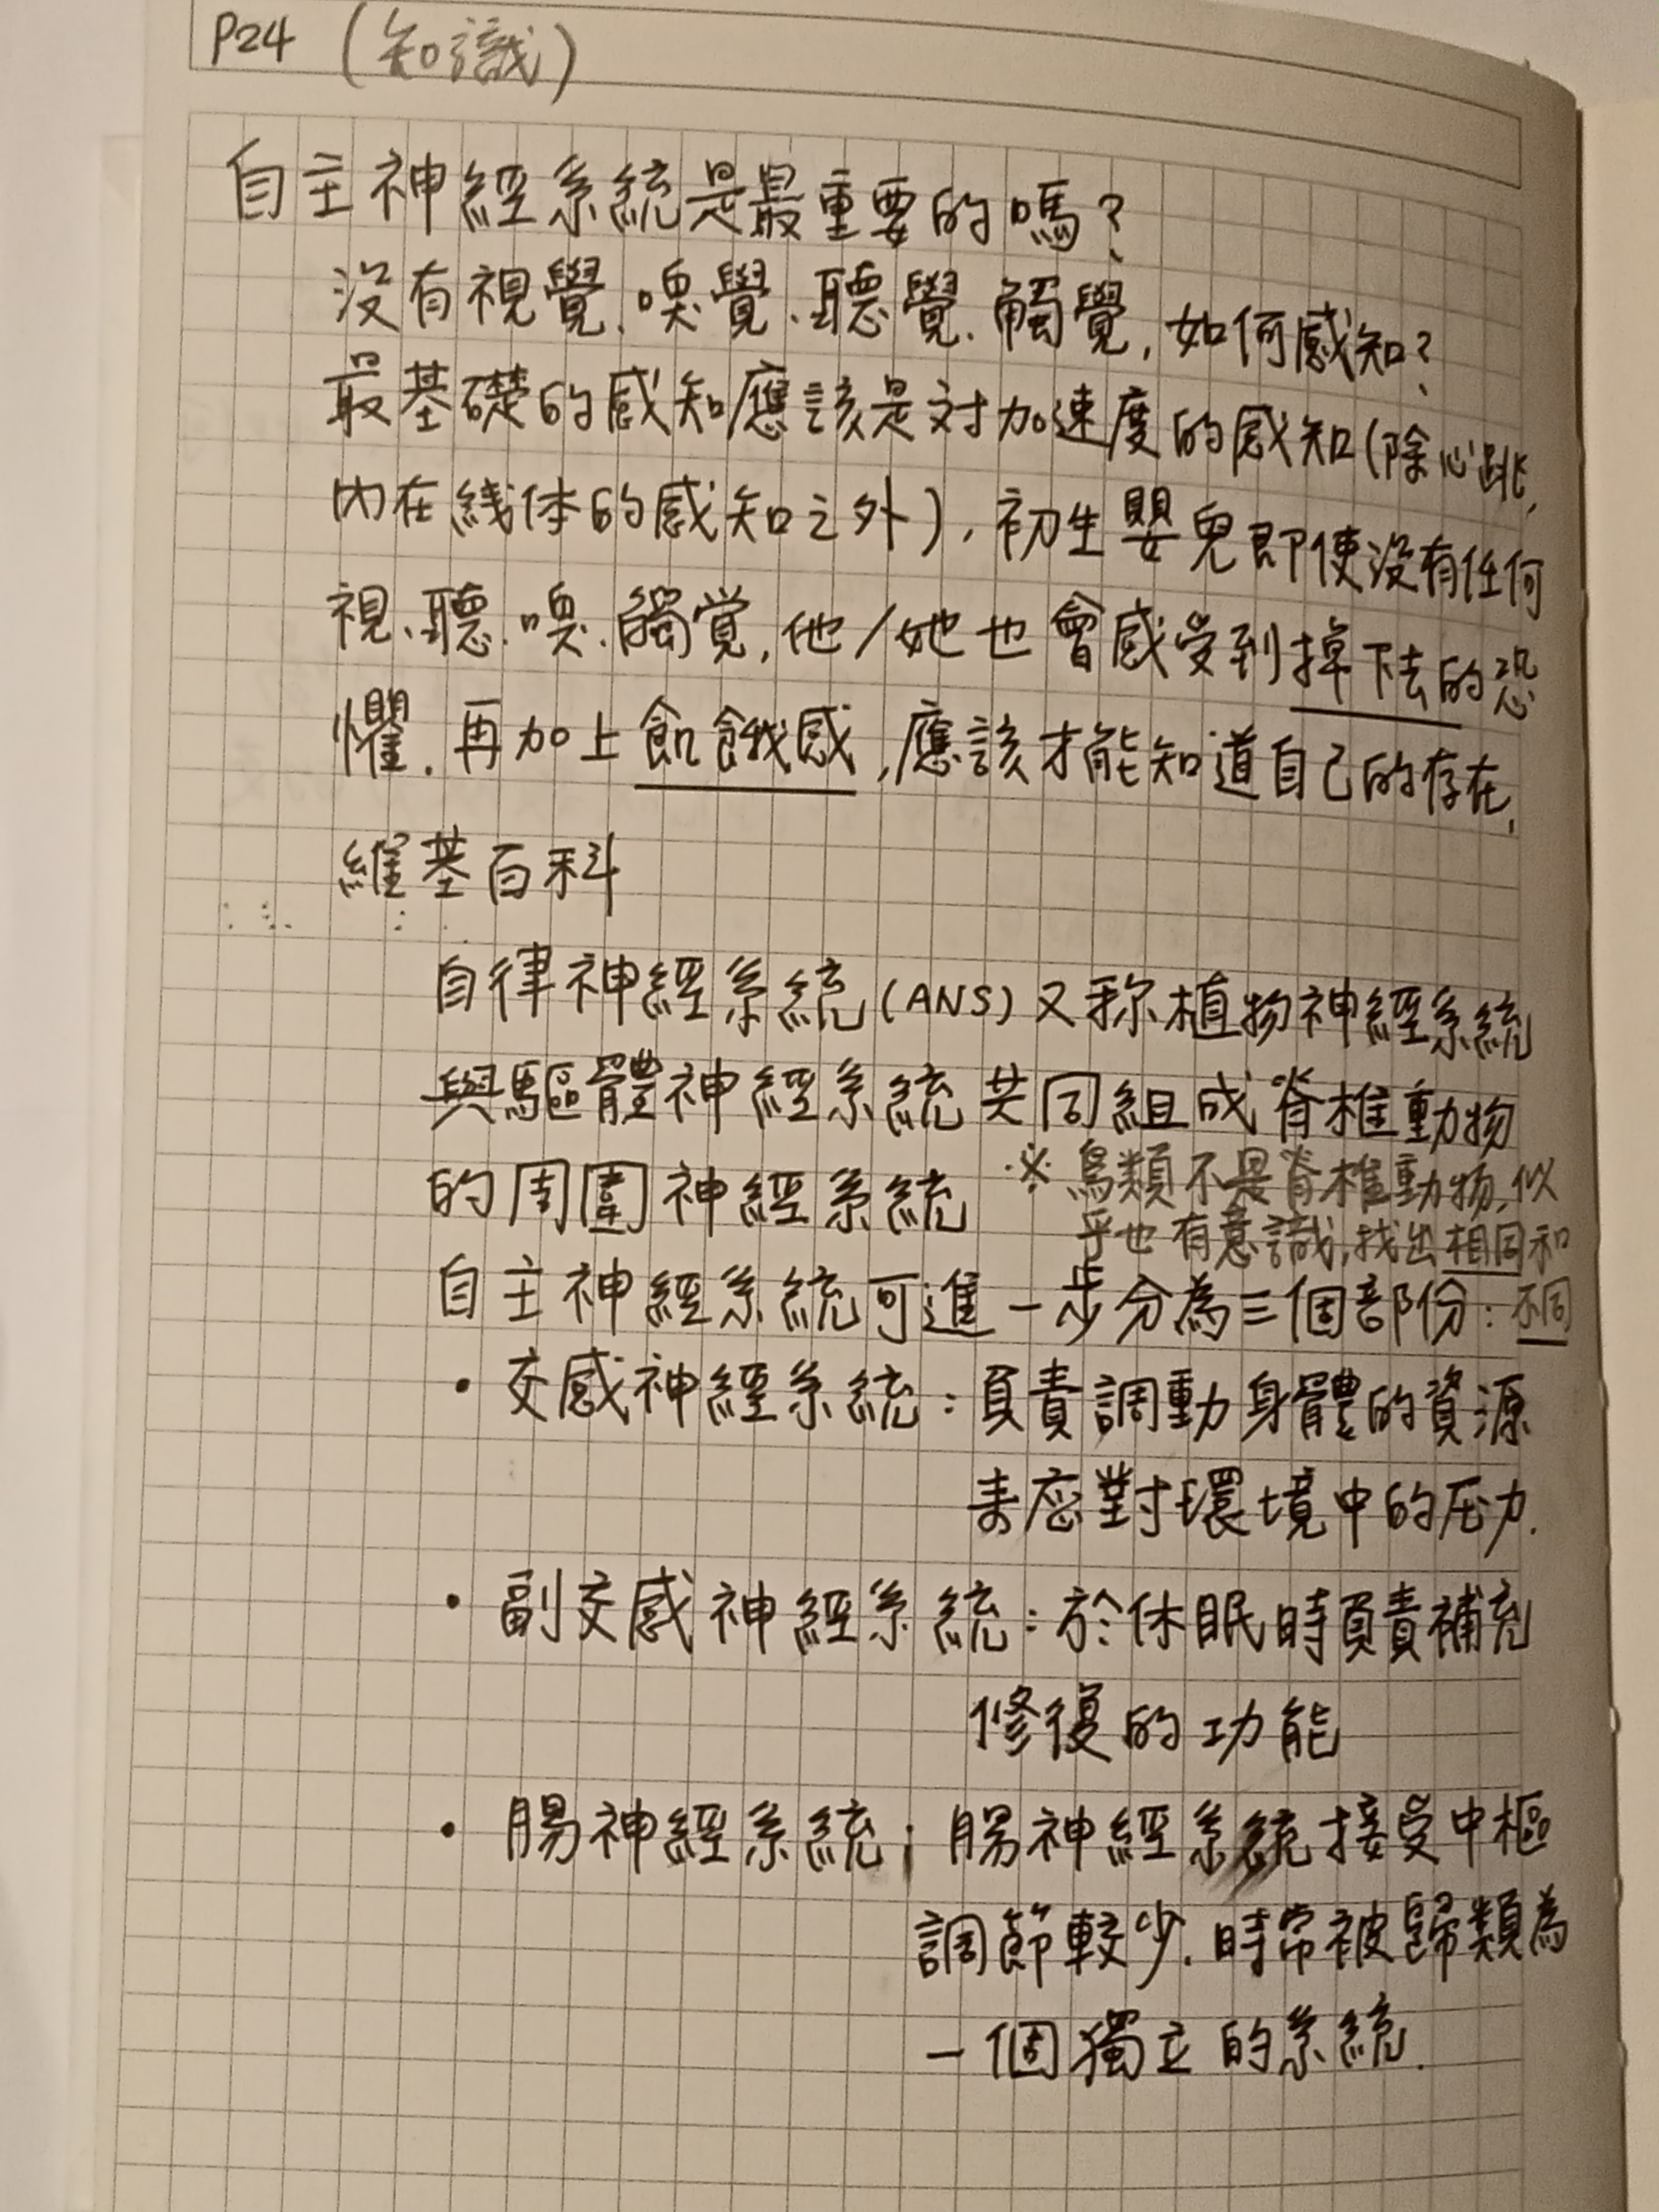 P24 (知識)
自主神經系統是最重要的嗎?
沒有視覺、嗅覺、聽覺、觸覺,如何感知?
最基礎的感知應該是对加速度的感知(除心跳,
內在线体的感知之外),初生嬰兒即使沒有任何
視、聽、嗅、觸覚,他/她也會感受到掉下去的恐
懼.再加上飢餓感,應該才能知道自己的存在,
維基百科
自律神經系統(ANS)又称植物神經系統
與驅體神經系統共同組成脊椎動物
的周圍神經系統
※ 鳥類不是脊椎動物,似
乎也有意識,找出相同和
不同
自主神經系統可進一步分為三個部份:
· 交感神經系統:負責調動身體的資源
来应對環境中的压力.
· 副交感神經系統:於休眠時負責補充
修復的功能
· 腸神經系統;腸神經系統接受中樞
調節較少.時常被歸類為
一個獨立的系統.